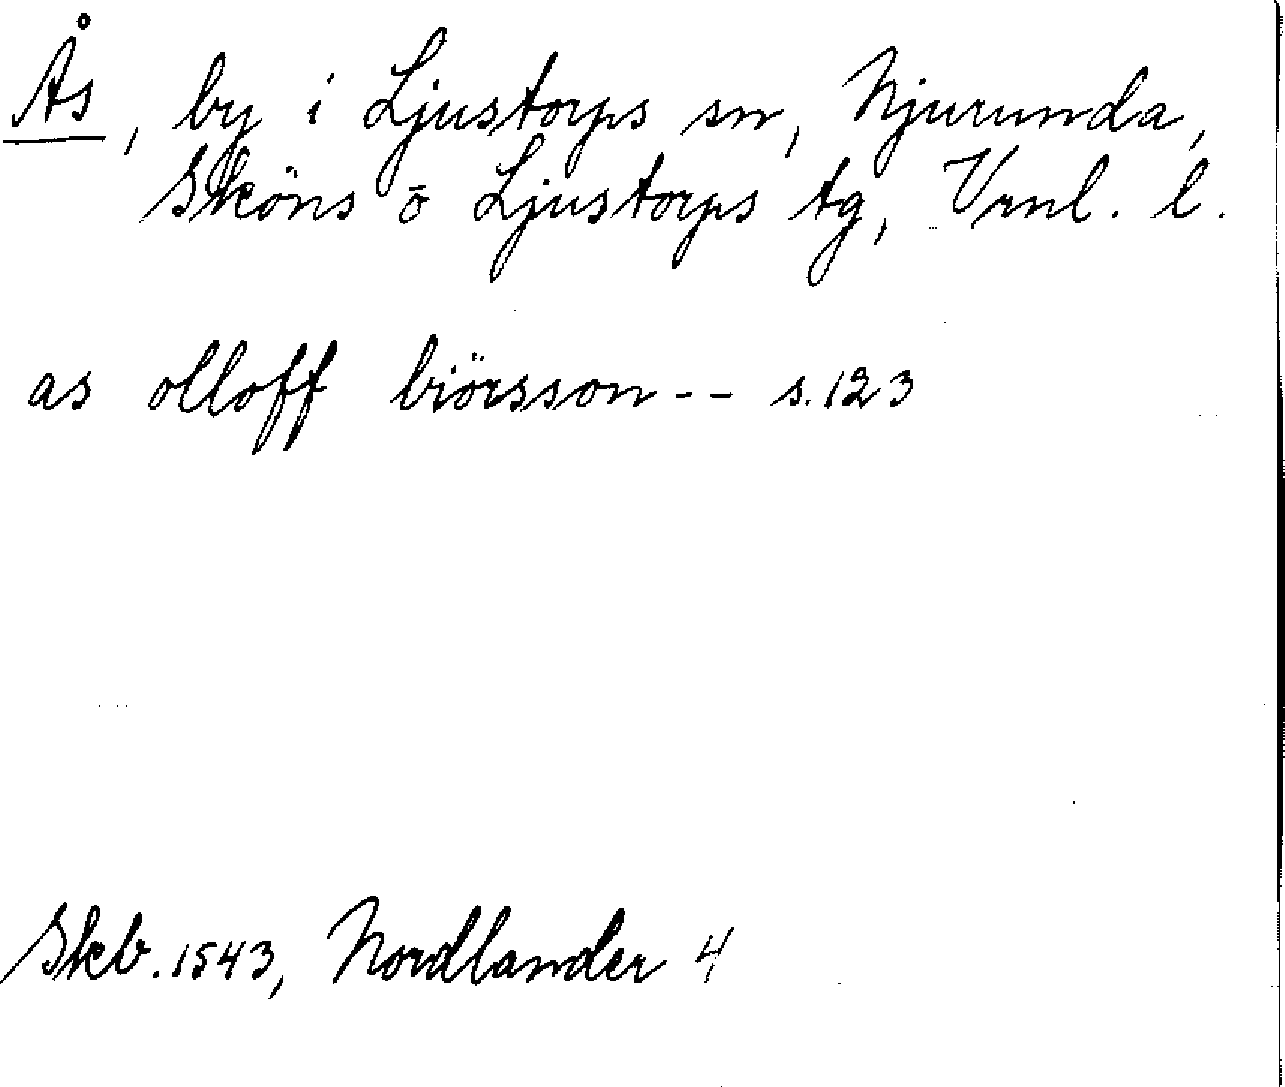 Ås, by i Ljustorps sn, Njurunda,
Sköns o Ljustorps tg, Vrnl. l.
as olloff biörsson -- s.123
Skb. 1543, Nordlander 4